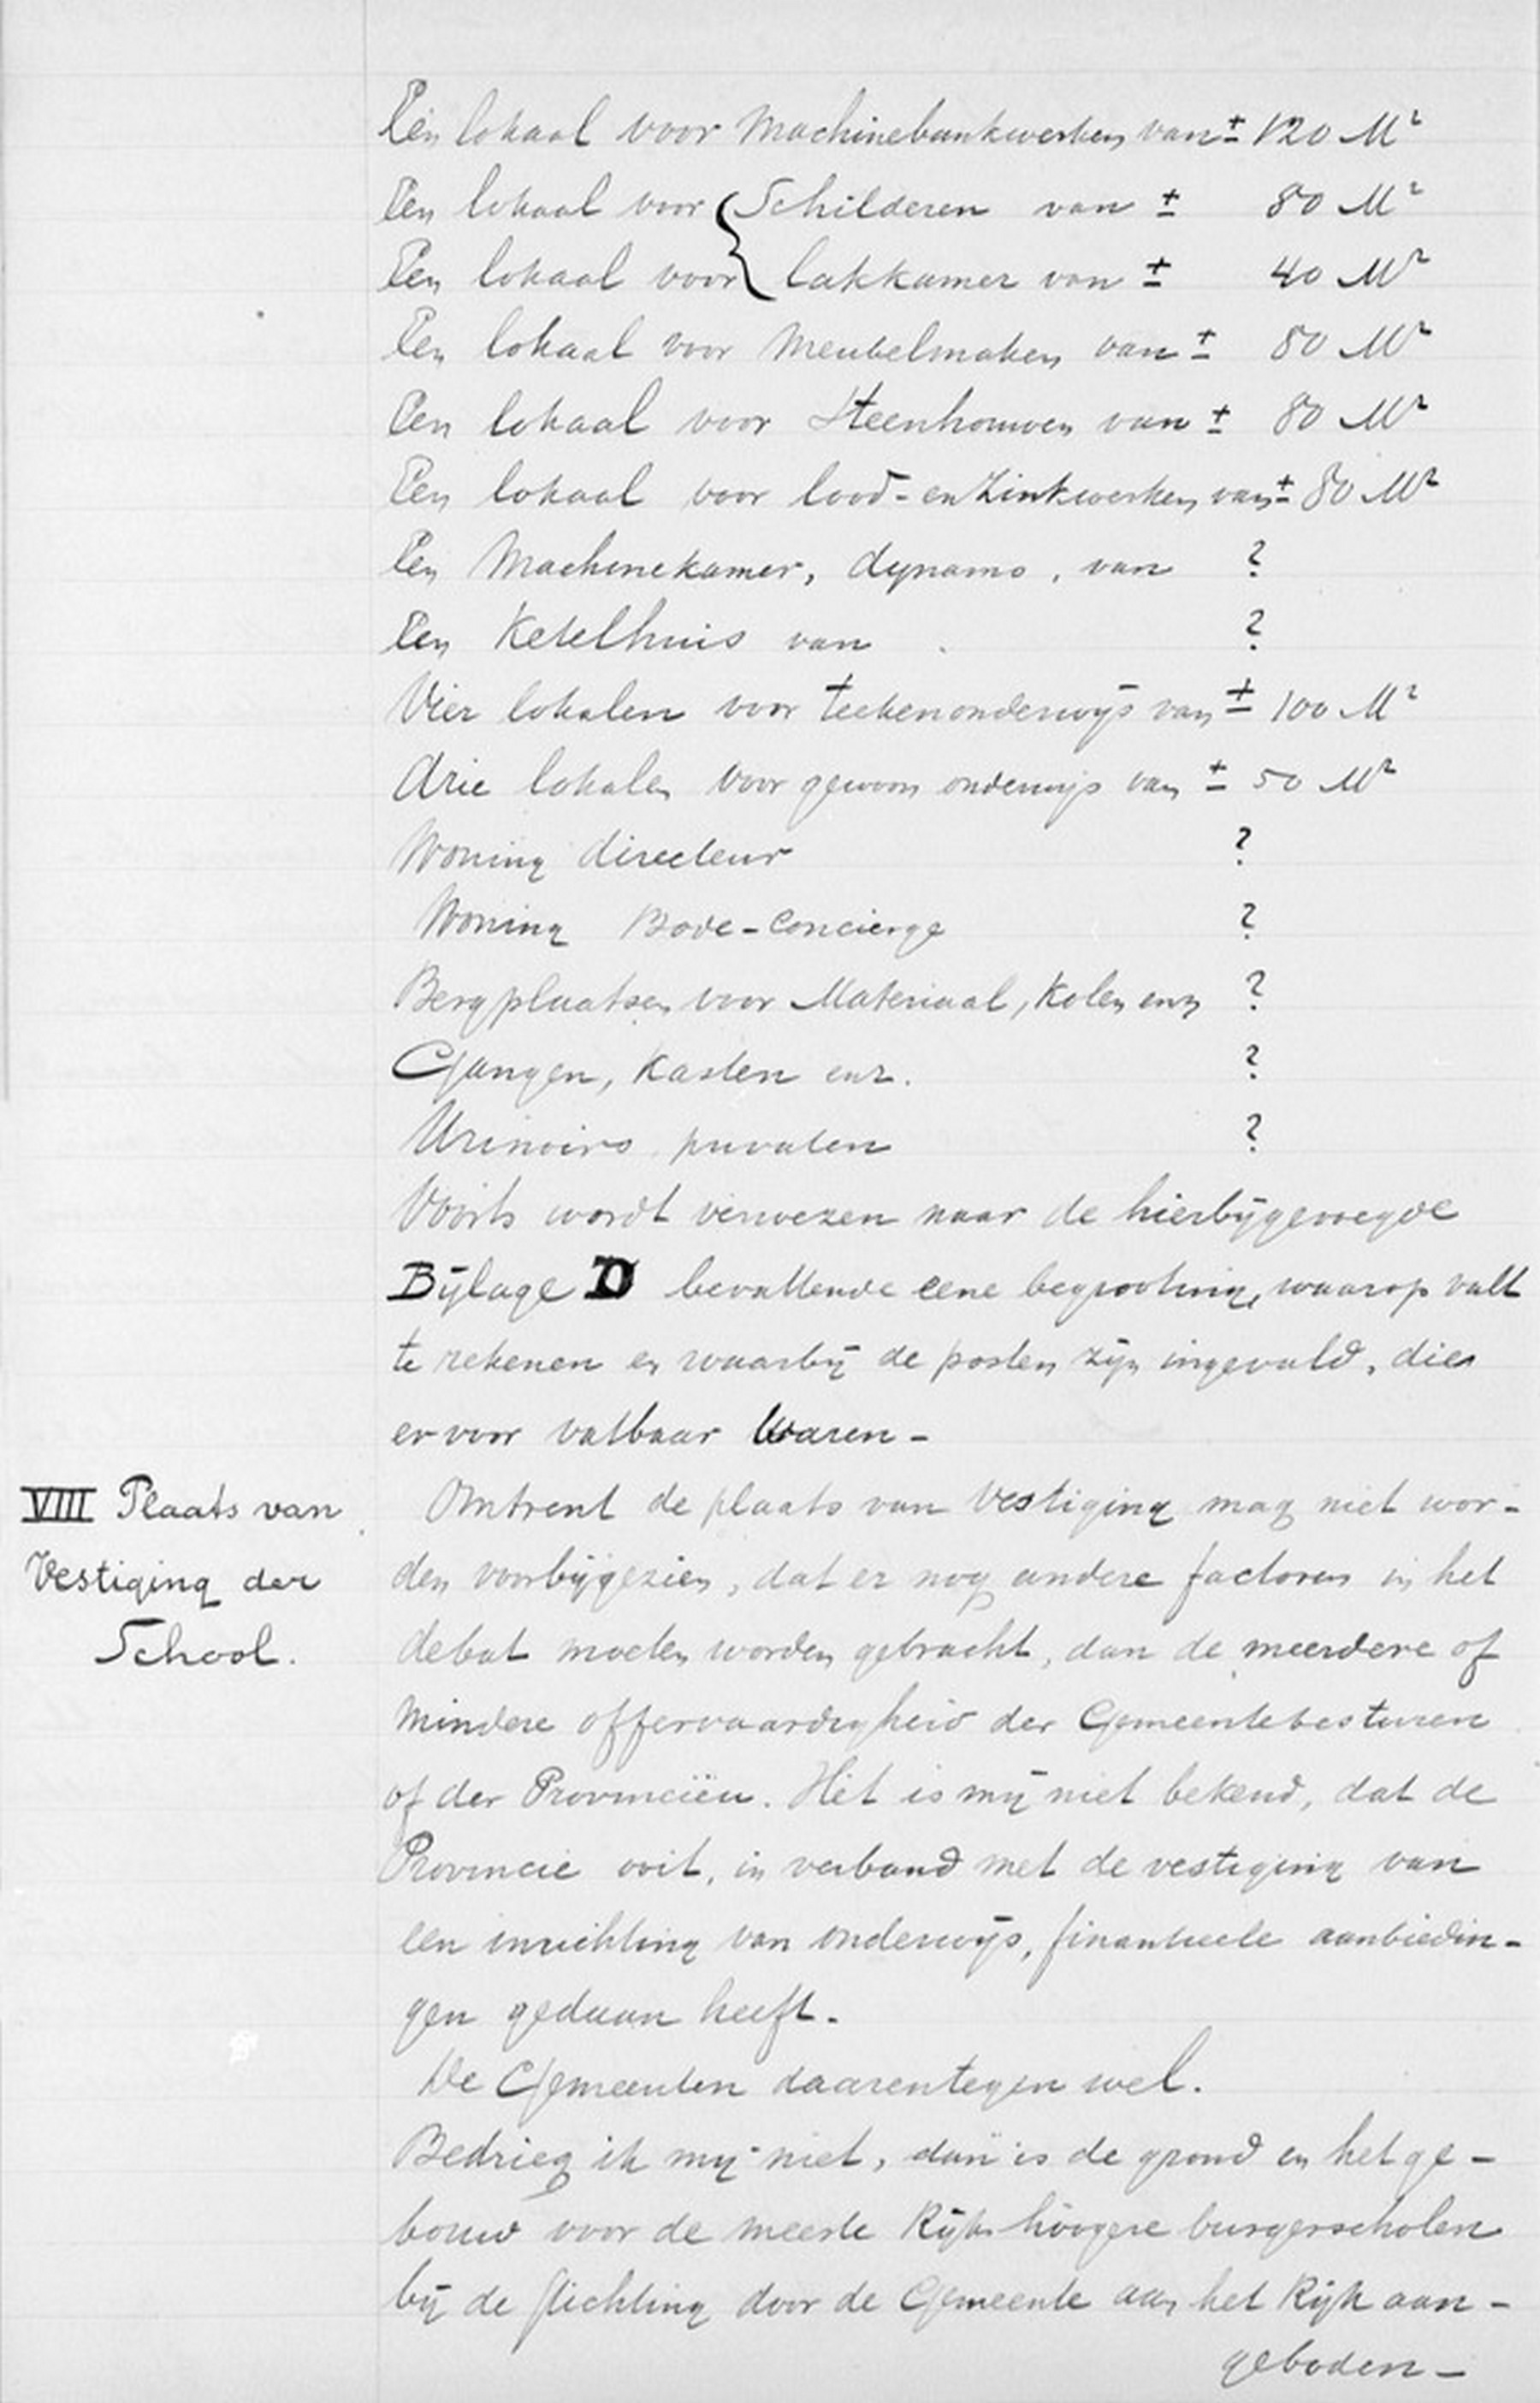 Een lokaal voor Machinebankwerken van ± 120 M²
Een lokaal voor { Schilderen van ± 80 M²
Een lokaal voor { lakkamer van ± 40 M²
Een lokaal voor Meubelmaken van ± 80 M²
Een lokaal voor Steenhouwen van ± 80 M²
Een lokaal voor lood- en Zinkwerken van ± 80 M²
Een Machinekamer, dynamo, van ?
Een Ketelhuis van ?
Vier lokalen voor teekenonderwijs van ± 100 M²
drie lokalen voor gewoon onderwijs van ± 50 M²
Woning directeur ?
Woning Bode-Concierge ?
Bergplaatsen voor Materiaal, Kolen enz ?
Gangen, Kasten enz. ?
Urinoirs privaten ?
Voorts wordt verwezen naar de hierbijgevoegde
Bijlage D bevattende eene begrooting, waarop valt
te rekenen en waarbij de posten zijn ingevuld, die
er voor vatbaar waren -
VIII Plaats van
Vestiging der
School.
Omtrent de plaats van Vestiging mag niet wor-
den voorbijgezien, dat er nog andere factoren in het
debat moeten worden gebracht, dan de meerdere of
mindere offervaardigheid der Gemeentebesturen
of der Provinciëen. Het is mij niet bekend, dat de
Provincie ooit, in verband met de vestiging van
een inrichting van onderwijs, financieele aanbiedin-
gen gedaan heeft.
De Gemeenten daarentegen wel.
Bedrieg ik mij niet, dan is de grond en het ge-
bouw voor de meeste Rijks hoogere burgerscholen
bij de stichting door de Gemeente aan het Rijk aan-
geboden -